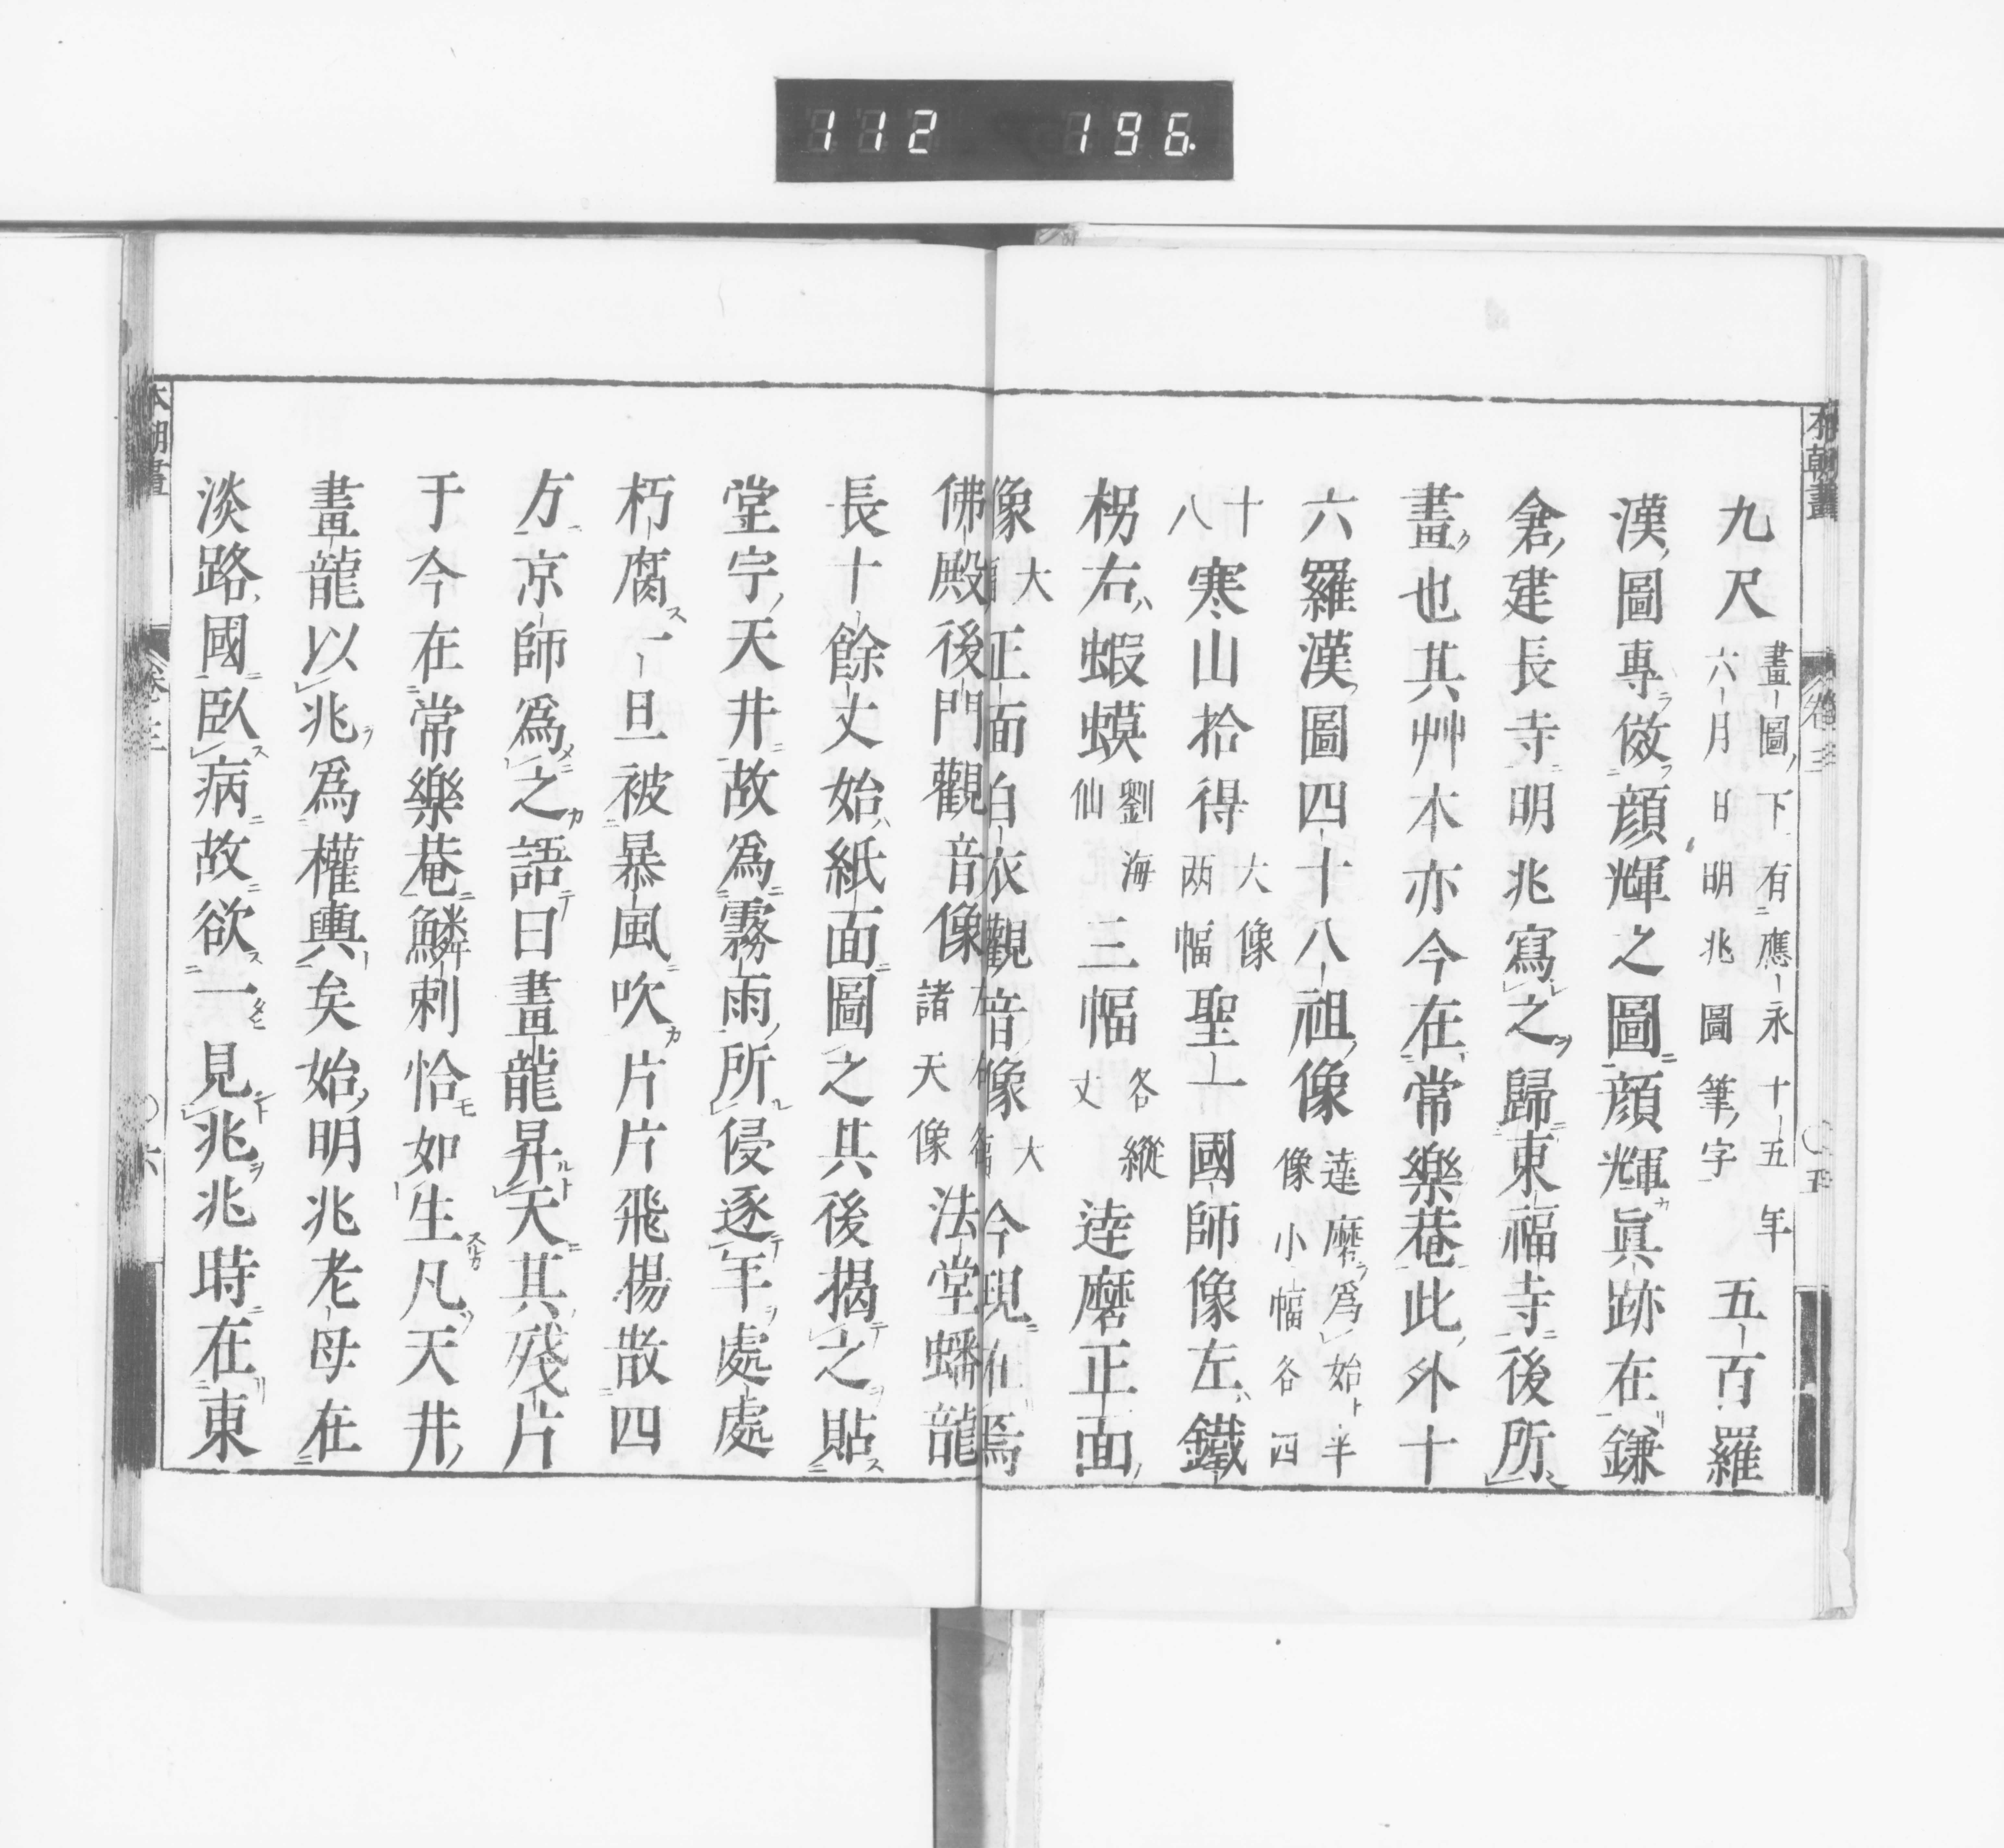 112 196
本朝畫 卷三 〇五
九尺 畫圖下有應永十五年六月日明兆圖筆字 五百羅
漢圖專倣顔輝之圖顔輝眞跡在鎌
倉建長寺明兆寫之歸東福寺後所
畫也其艸本亦今在常樂菴此外十
六羅漢圖四十八祖像 達磨爲始半像小幅各四
十八 寒山拾得 大像兩幅 聖一國師像左鐵
柺右蝦蟆 劉海仙 三幅 各縱丈 達磨正面
像 大幅 正面白衣觀音像 大幅 今現在焉
佛殿後門觀音像 左右諸天像 法堂蟠龍
長十餘丈始紙面圖之其後揭之貼
堂宇天井故爲霧雨所侵逐年處處
朽腐一旦被暴風吹片片飛揚散四
方京師爲之語曰畫龍昇天其殘片
于今在常樂菴鱗刺恰如生凡天井
畫龍以兆爲權輿矣始明兆老母在
淡路國臥病故欲一見兆兆時在東
本朝畫 卷三 〇六